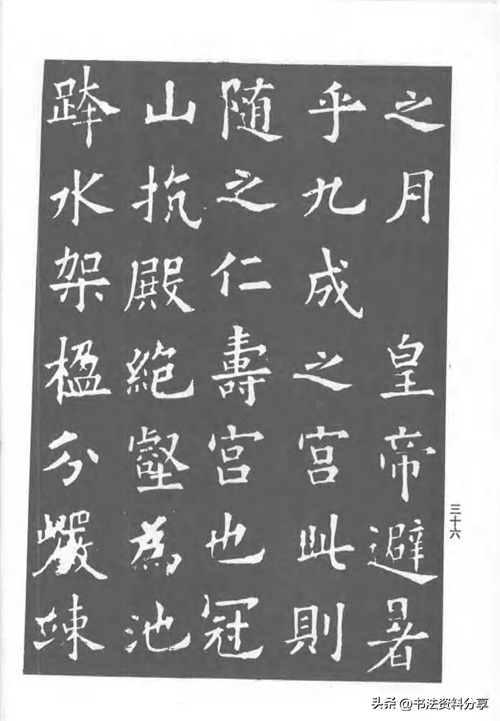 之月 皇帝避暑
乎九成之宫此則
随之仁壽宫也冠
山抗殿絶壑為池
跨水架楹分巖竦
三十六
头条 @书法资料分享